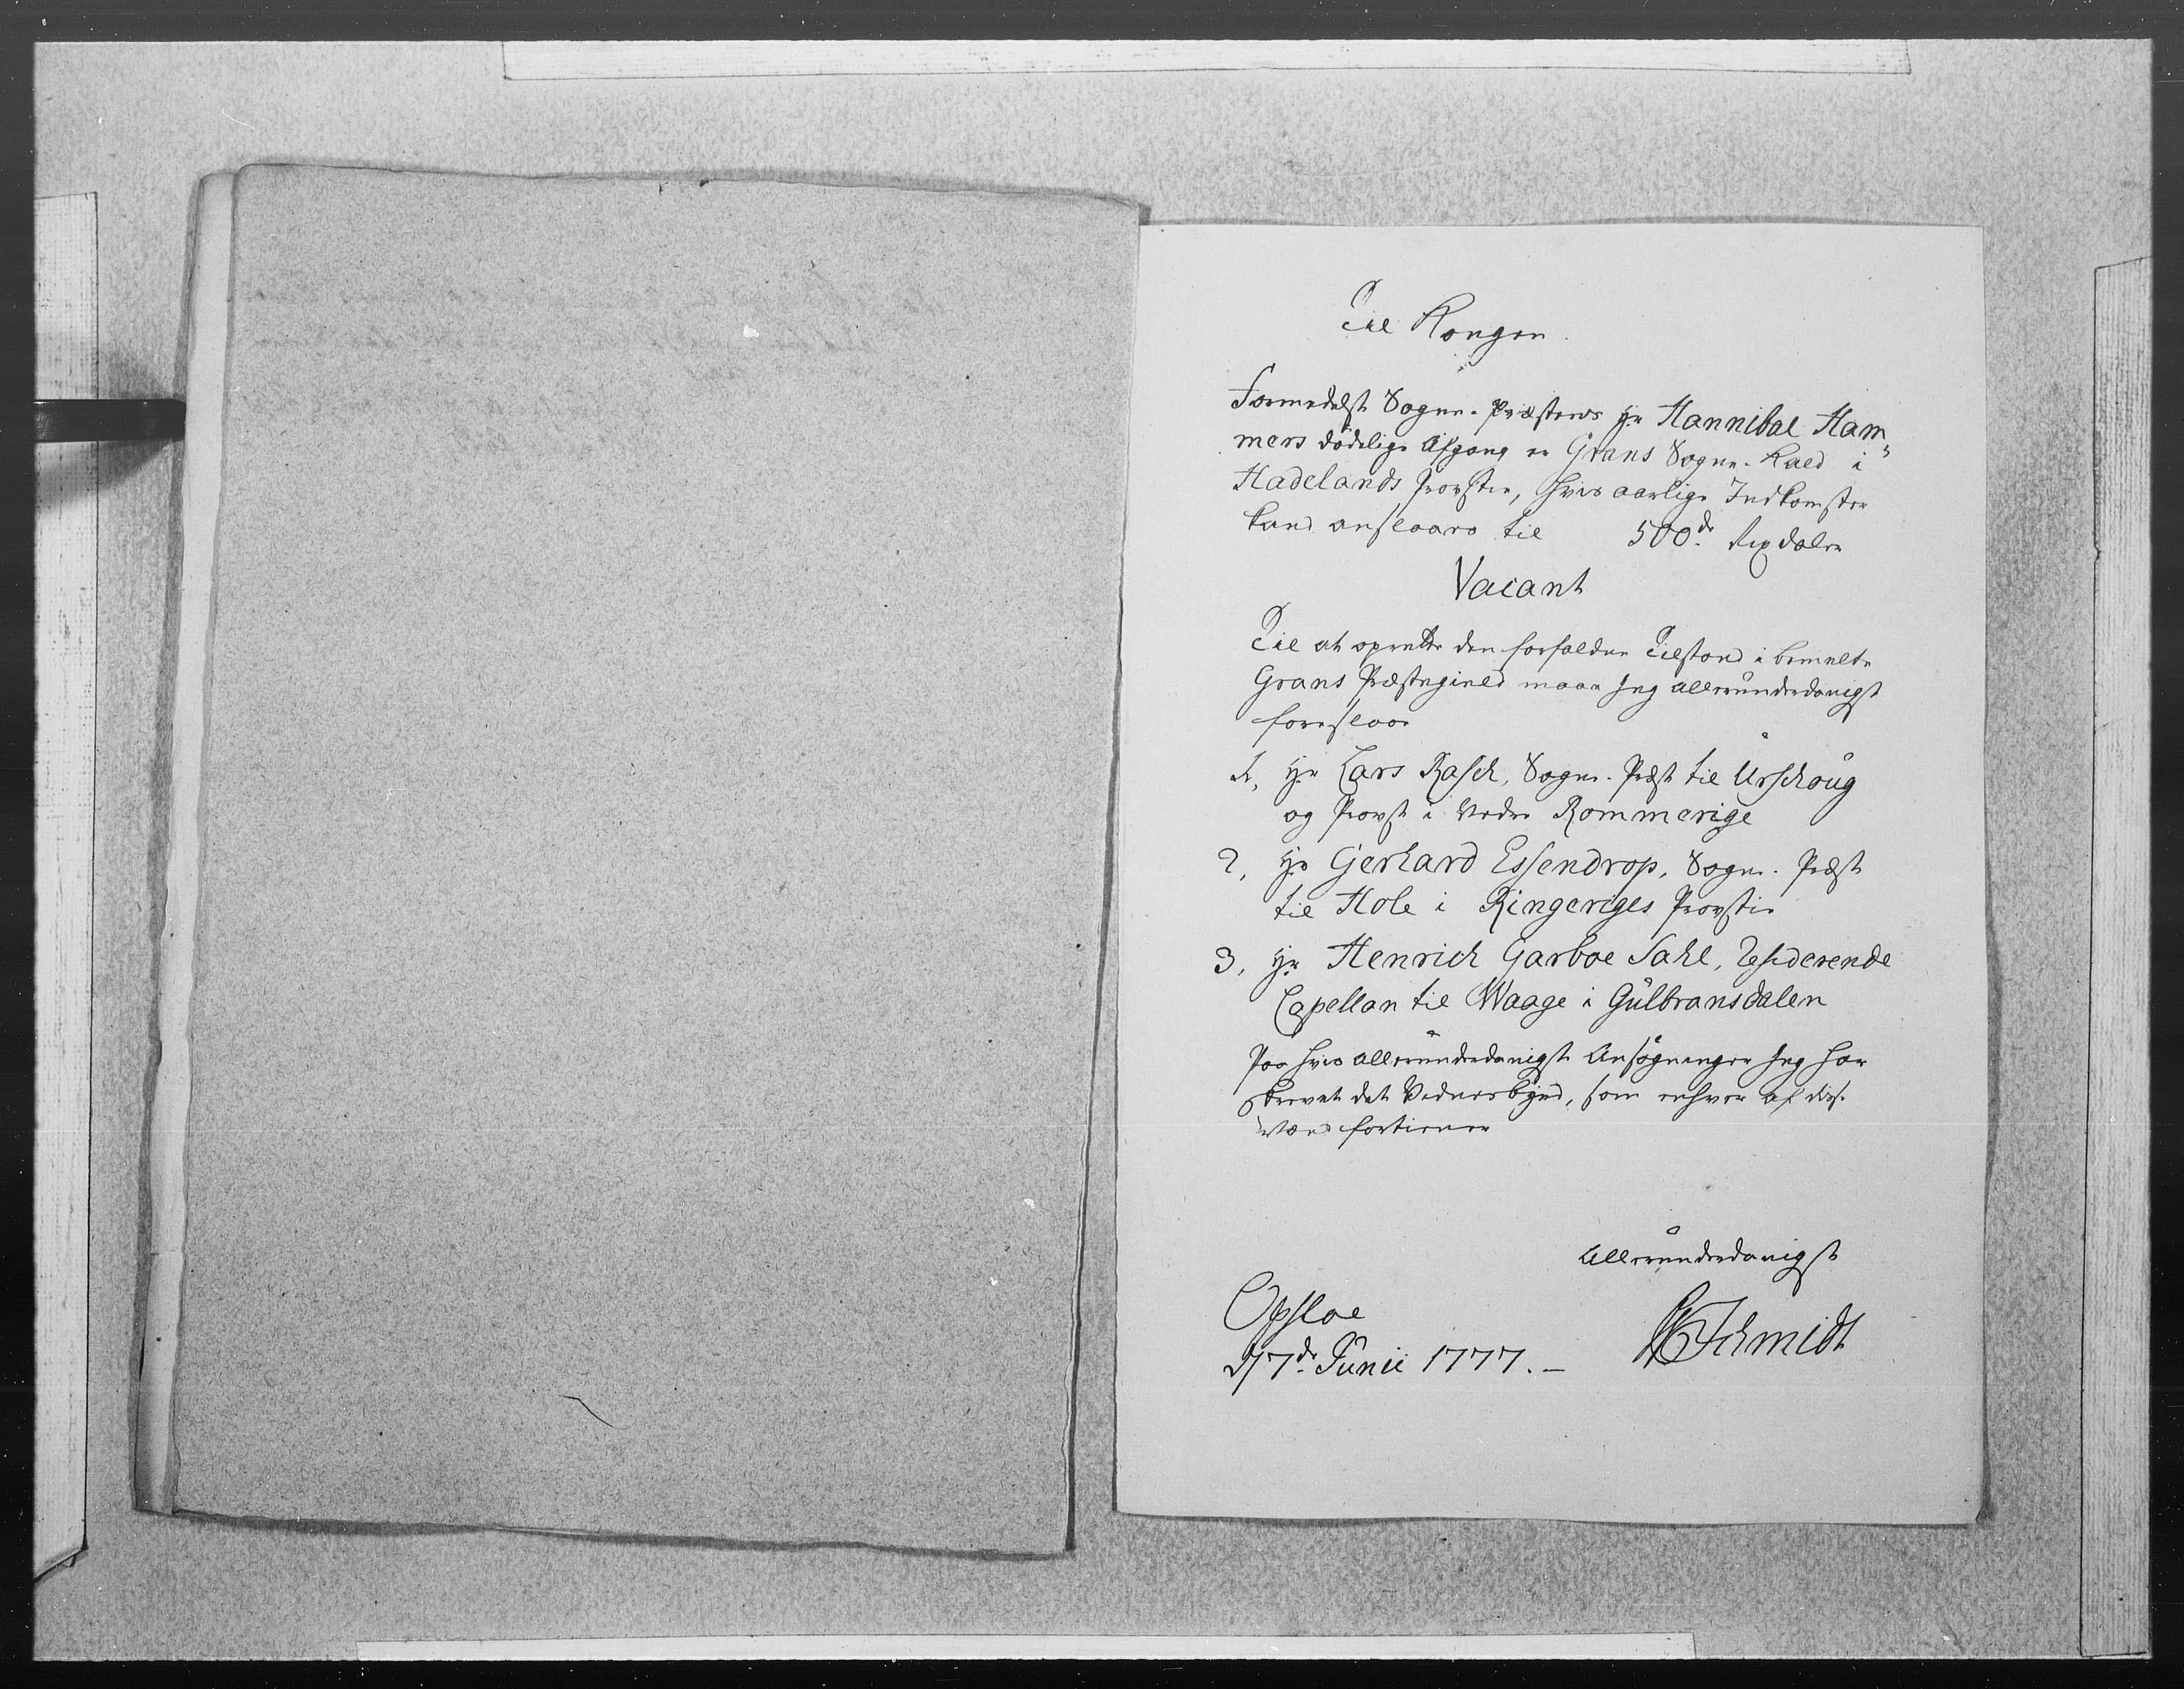 Til Kongen.
Formedelst Sogne-Præstens Hr Hannibal Ham„
mers dödelige Afgang er Grans Sogne-Kald i
Hadelands Provstie, hvis aarlige Indkomster
kand anslaaes til 500de Rixdaler
Vacant
Til at oprette den forfaldne Tilstand i bemelte
Grans Præstegield maae jeg allerunderdanigst
foreslaae
1, Hr Lars Rasch, Sogne-Præst til Urschoug
og Provst i Nedre Rommerige
2, Hr Gerhard Essendrop, Sogne-Præst
til Hole i Ringeriges Provstie
3, Hr Henrich Garboe Sahl, Residerende
Capellan til Waage i Gulbransdalen
Paa hvis allerunderdanigste Ansøgninger jeg har
skrevet det Vidnesbyrd, som enhver af disse
Mænd fortiener
Allerunderdanigst
Opsloe
d 17de Junii 1777.– Schmidt